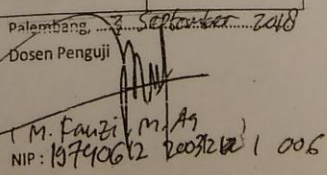 Palembang, 3 September 2018
Dosen Penguji
( M. Fauzi, M. Ag )
NIP : 19740612 200312 1 006